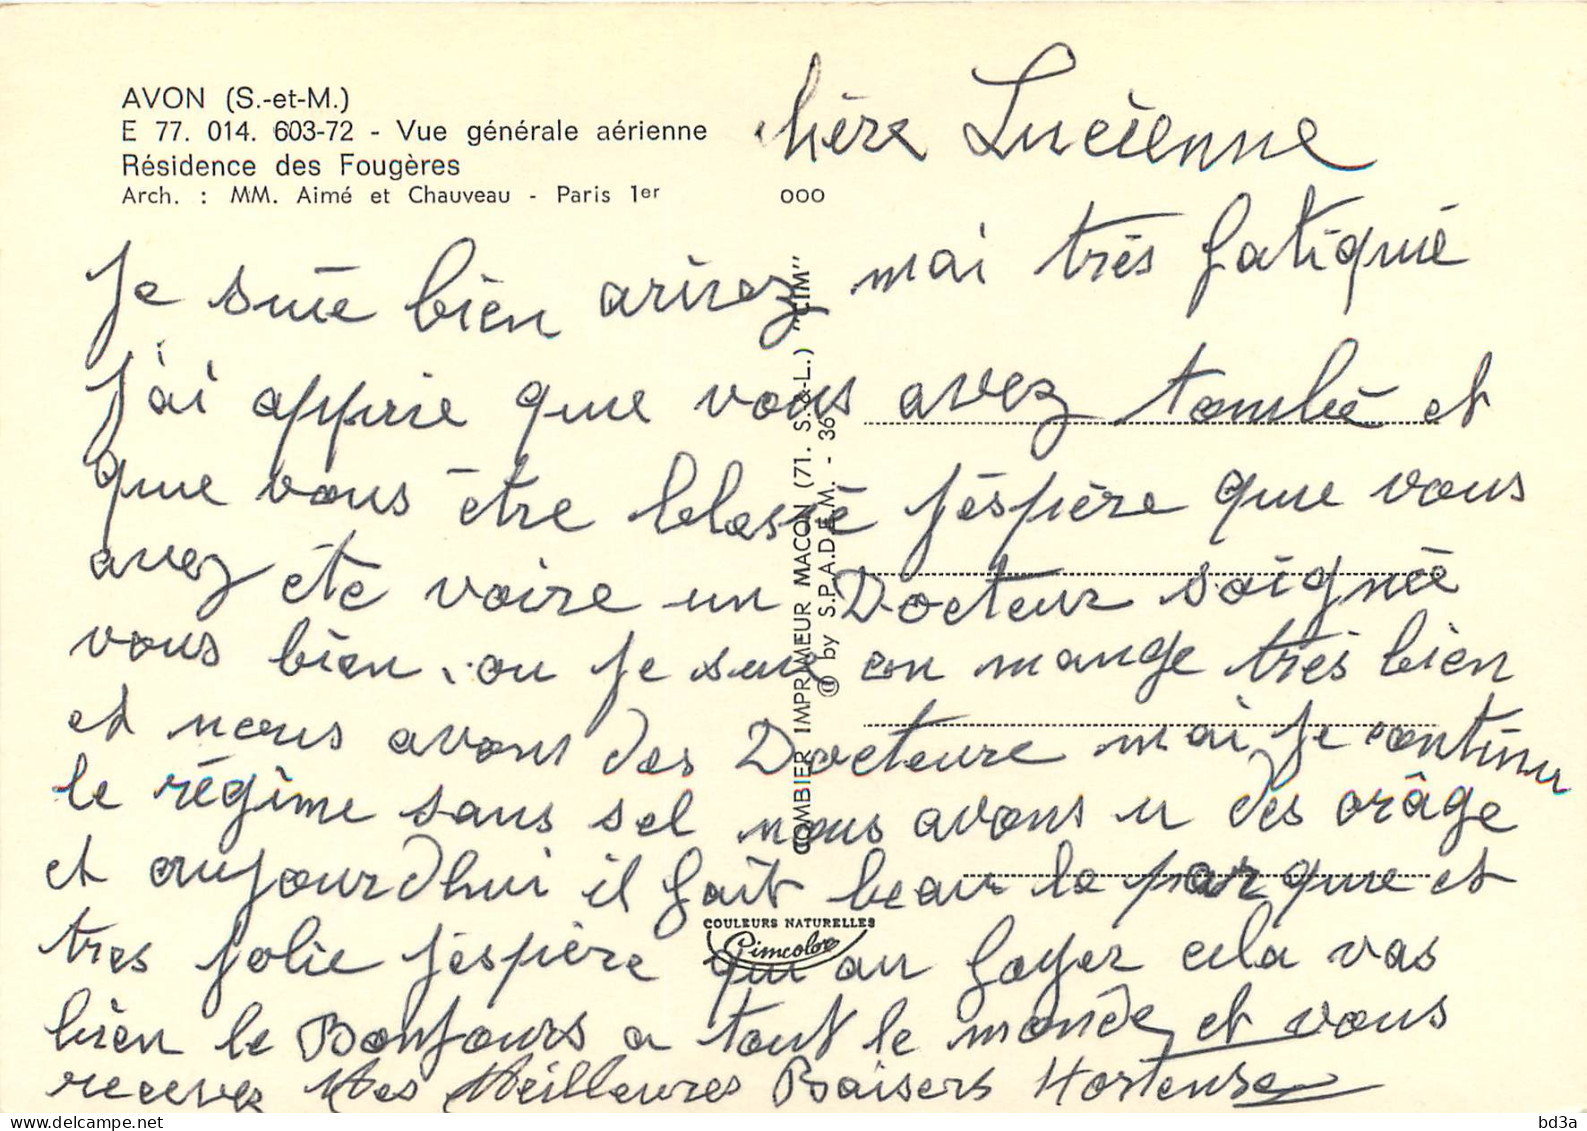 AVON (S.-et-M.)
E 77. 014. 603-72 - Vue générale aérienne
Résidence des Fougères
Arch. : MM. Aimé et Chauveau - Paris 1er
000
chère Lucienne
Je suie bien arivez mai très fatiquié
J'ai apprie que vous avez tombé et
que vous être blessé j'éspière que vous
avez été voire un Docteur soignée
vous bien. ou je suie on mange très bien
et nous avons des Docteure mai je continu
le régime sans sel nous avons u des orâge
et aujourdhui il fait beau le parque et
tres jolie j'éspière qu au foyer cela vas
bien le Bonjours a tout le monde et vous
recevez Mes Meilleures Baisers Hortense
COMBIER IMPRIMEUR MACON (71. S.-&-L.) "CIM"
® by S.P.A.D.E.M. - 36
COULEURS NATURELLES
Cimcolor
bd3a